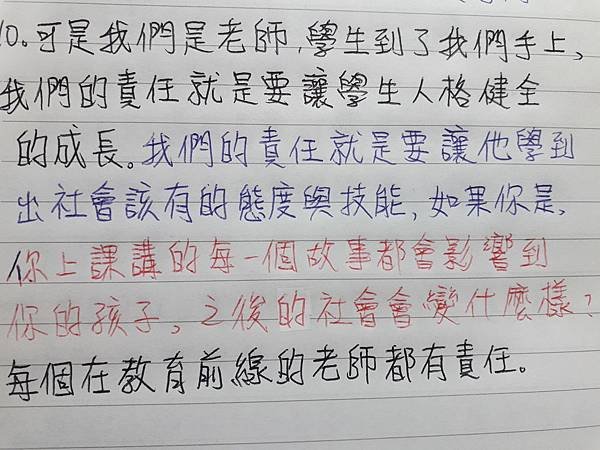 10。可是我們是老師，學生到了我們手上、
我們的責任就是要讓學生人格健全
的成長。我們的責任就是要讓他學到
出社會該有的態度與技能，如果你是，
你上課講的每一個故事都會影響到
你的孩子，之後的社會會變什麼樣？
每個在教育前線的老師都有責任。